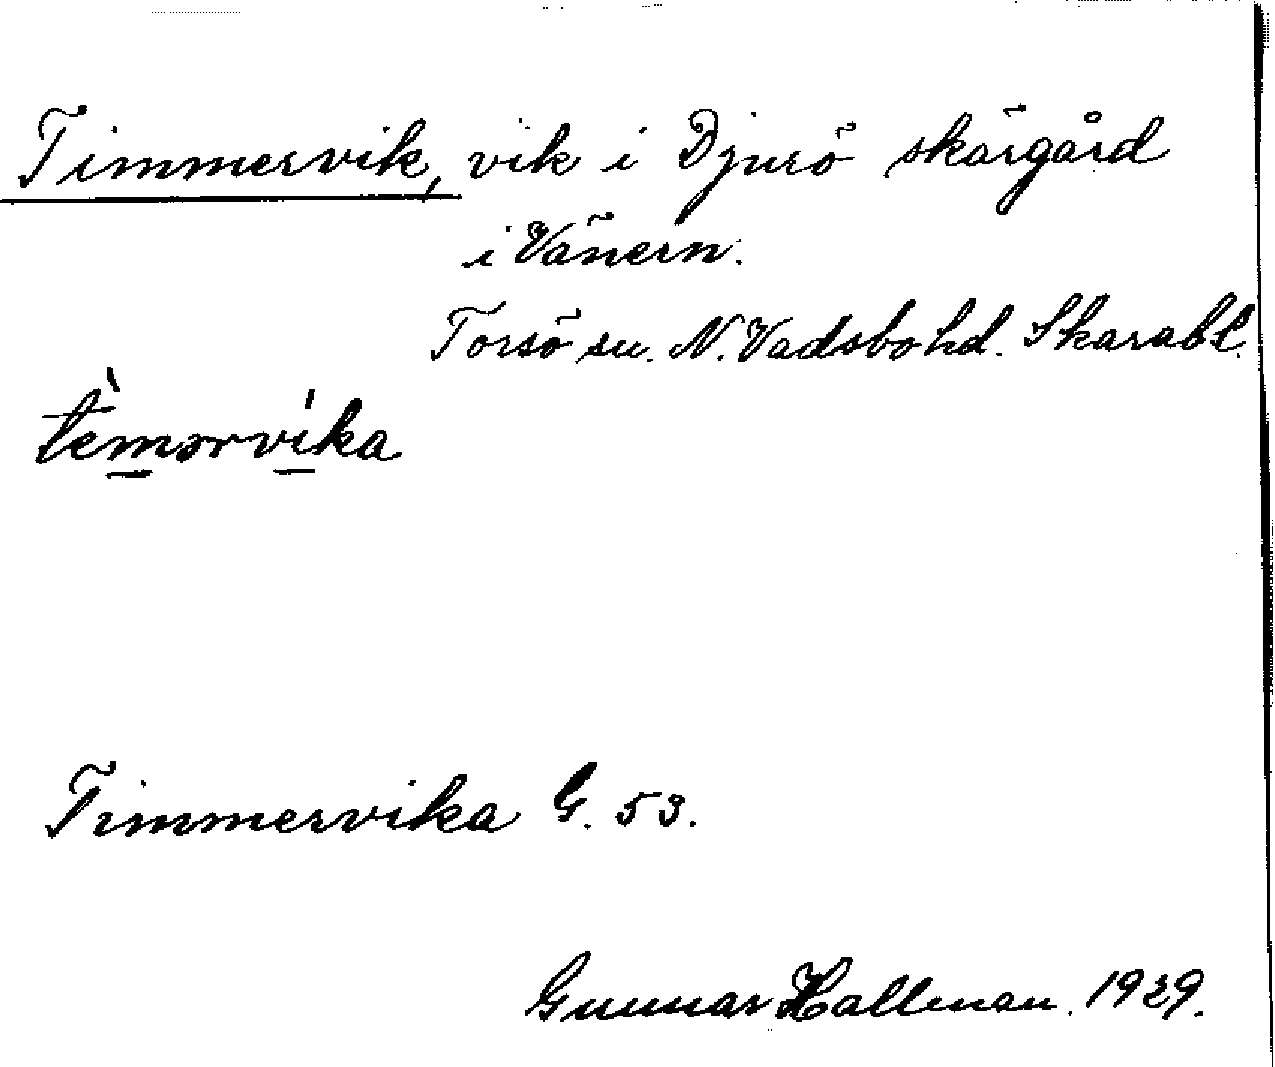 Timmervik, vik i Djurö skärgård
i Vänern.
Torsö sn. N. Vadsbo hd. Skarabl.
tèmərvíka
Timmervika G. 53.
Gunnar Hallman. 1929.